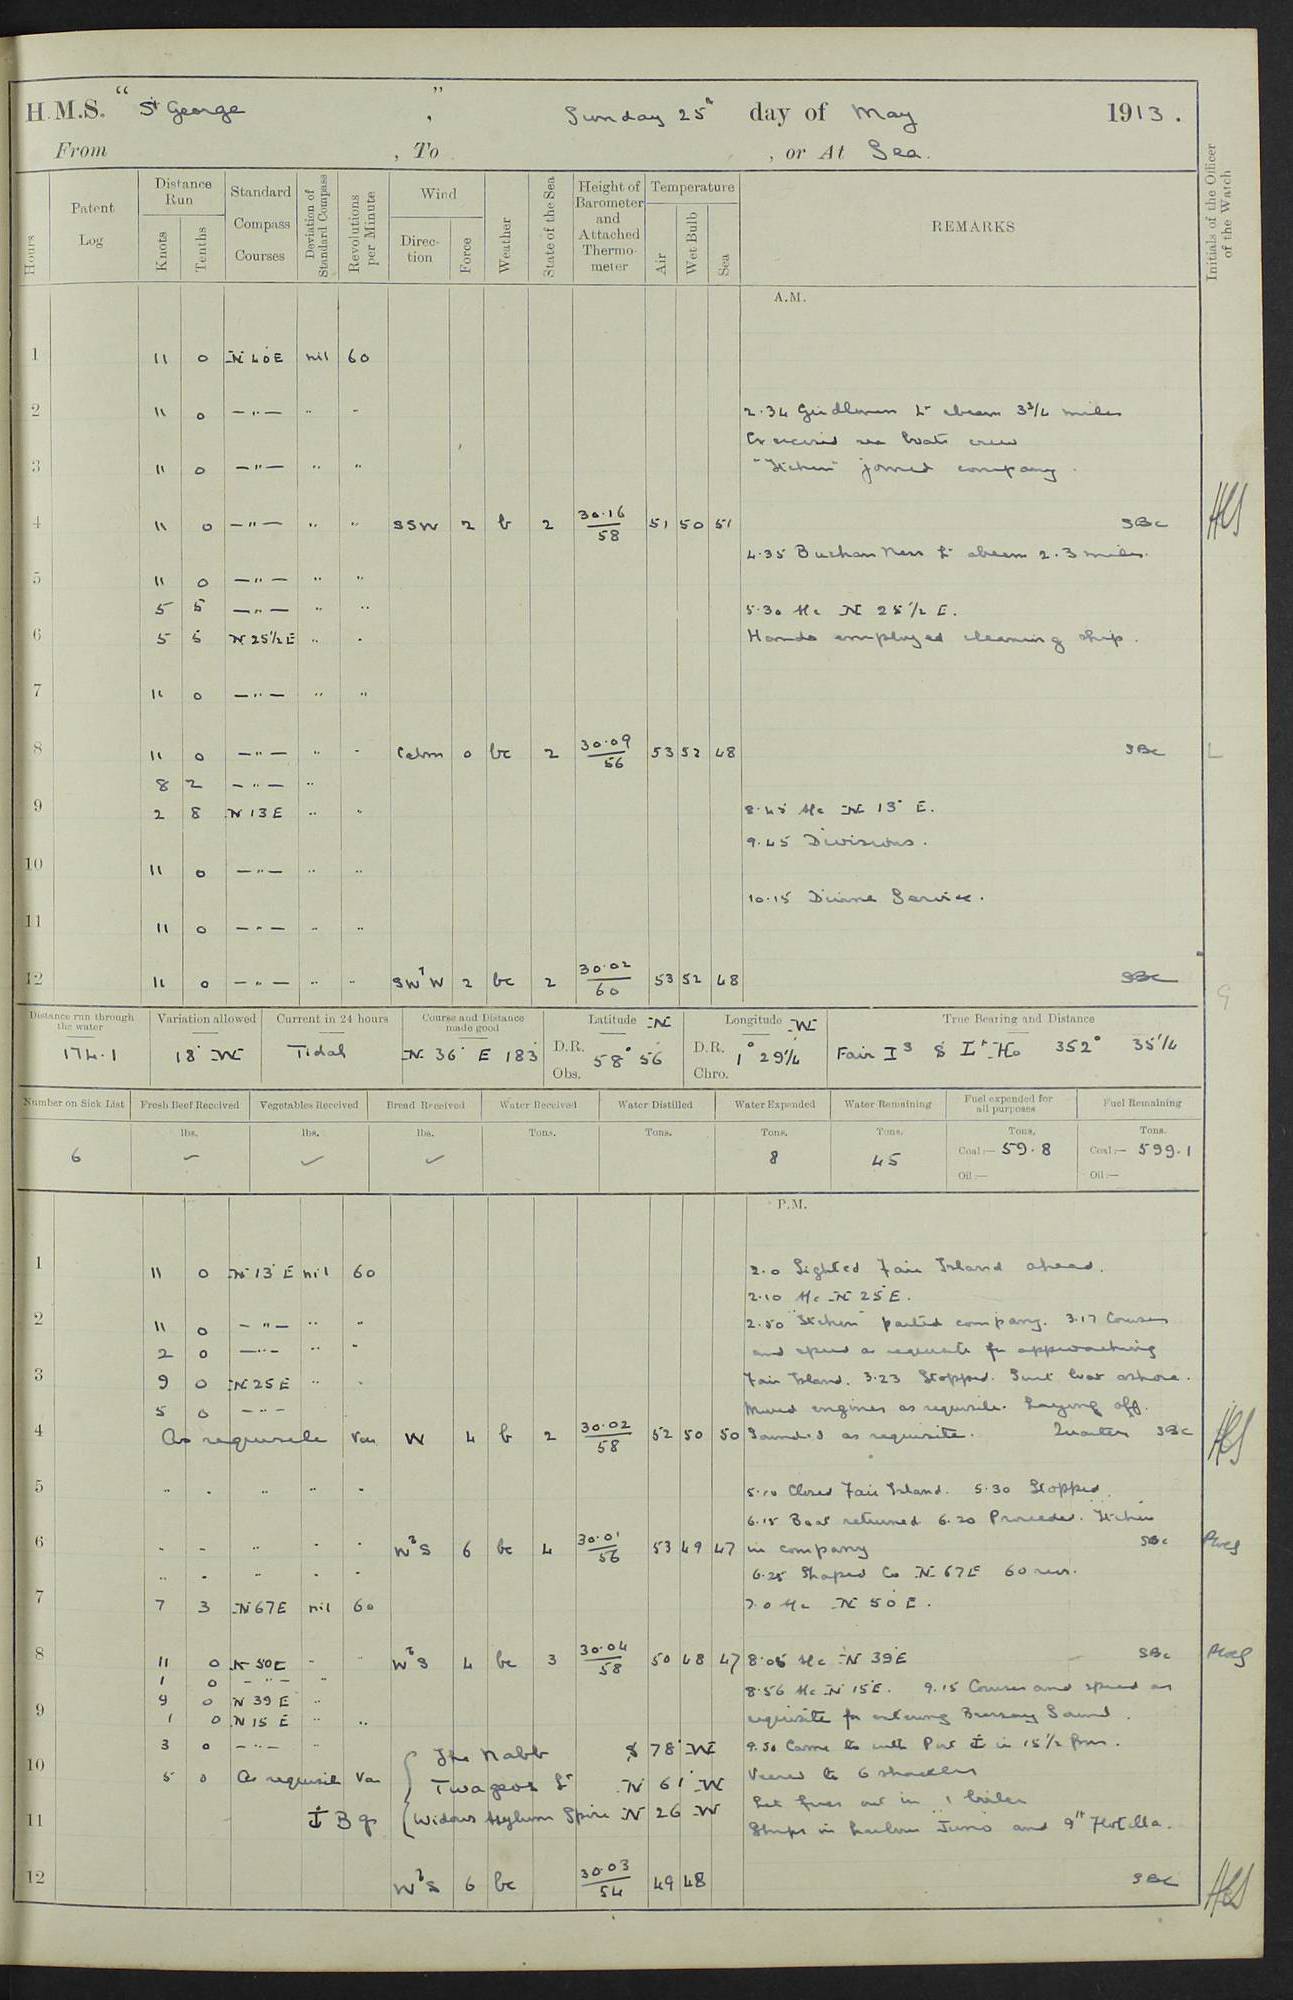 H.M.S. "St George", Sunday 25th day of May 1913.
From , To , or At Sea.
Hours
Patent Log
Distance Run
Knots
Tenths
Standard Compass Courses
Deviation of Standard Compass
Revolutions per Minute
Wind
Direction
Force
Weather
State of the Sea
Height of Barometer and Attached Thermometer
Temperature
Air
Wet Bulb
Sea
REMARKS
Initials of the Officer of the Watch
A.M.
1 11 0 N 40 E nil 60
2 11 0 — " — " " 2.34 Girdleness Lt abeam 3 3/4 miles
Exercised sea boats crew
3 11 0 — " — " " "Itchen" joined company.
4 11 0 — " — " " SSW 2 b 2 30.16/58 51 50 51 SBC
4.35 Buchan Ness Lt abeam 2.3 miles.
5 11 0 — " — " "
5 5 — " — " " 5.30 A/c N 25 1/2 E.
6 5 5 N 25 1/2 E " " Hands employed cleaning ship.
7 11 0 — " — " "
8 11 0 — " — " " Calm 0 bc 2 30.09/56 53 52 48 SBC
8 2 — " — "
9 2 8 N 13 E " " 8.45 A/c N 13° E.
9.45 Divisions.
10 11 0 — " — " "
10.15 Divine Service.
11 11 0 — " — " "
12 11 0 — " — " " SW'W 2 bc 2 30.02/60 53 52 48 SBC
Distance run through the water
174.1
Variation allowed
18° W
Current in 24 hours
Tidal
Course and Distance made good
N 36° E 183
Latitude N
D.R. 58° 56
Obs.
Longitude W
D.R. 1° 29 1/4
Chro.
True Bearing and Distance
Fair Is S Lt Ho 352° 35 1/4
Number on Sick List
Fresh Beef Received
Vegetables Received
Bread Received
Water Received
Water Distilled
Water Expended
Water Remaining
Fuel expended for all purposes
Fuel Remaining
lbs. lbs. lbs. Tons. Tons. Tons. Tons. Tons. Tons.
6 8 45 Coal:— 59.8 Coal:— 599.1
Oil:— Oil:—
P.M.
1 11 0 N 13° E nil 60 2.0 Sighted Fair Island ahead.
2.10 A/c N 25 E.
2 11 0 — " — " " 2.50 "Itchen" parted company. 3.17 Courses
2 0 — " — " " and speed as requisite for approaching
3 9 0 N 25 E " " Fair Island. 3.23 Stopped. Sent boat ashore.
5 0 — " — Moved engines as requisite. Laying off.
4 As requisite Var W 4 b 2 30.02/58 52 50 50 Sounded as requisite. Quarters SBC
5 " " " " " 5.10 Closed Fair Island. 5.30 Stopped.
6.15 Boat returned 6.20 Proceeded. Itchen
6 " " " " " W'S 6 bc 4 30.01/56 53 49 47 in company SBC
" " " " " 6.25 Shaped Co N 67 E 60 revs.
7 7 3 N 67 E nil 60 7.0 A/c N 50 E.
8 11 0 N 50 E " " W'S 4 bc 3 30.04/58 50 48 47 8.05 A/c N 39 E SBC
1 0 — " — "
9 0 N 39 E " 8.56 A/c N 15 E. 9.15 Courses and speed as
9 1 0 N 15 E " " requisite for entering Bressay Sound.
3 0 — " — " The Nabb S 78° W 9.50 Came to with Port ⚓ in 15 1/2 fms.
10 5 0 As requisite Var Twageos Lt N 61° W Veered to 6 shackles
⚓ Bgs Widows Asylum Spire N 26 W Let fires out in 1 boiler
11 Ships in harbour Juno and 9th Flotilla.
12 W'S 6 bc 30.03/54 49 48 SBC